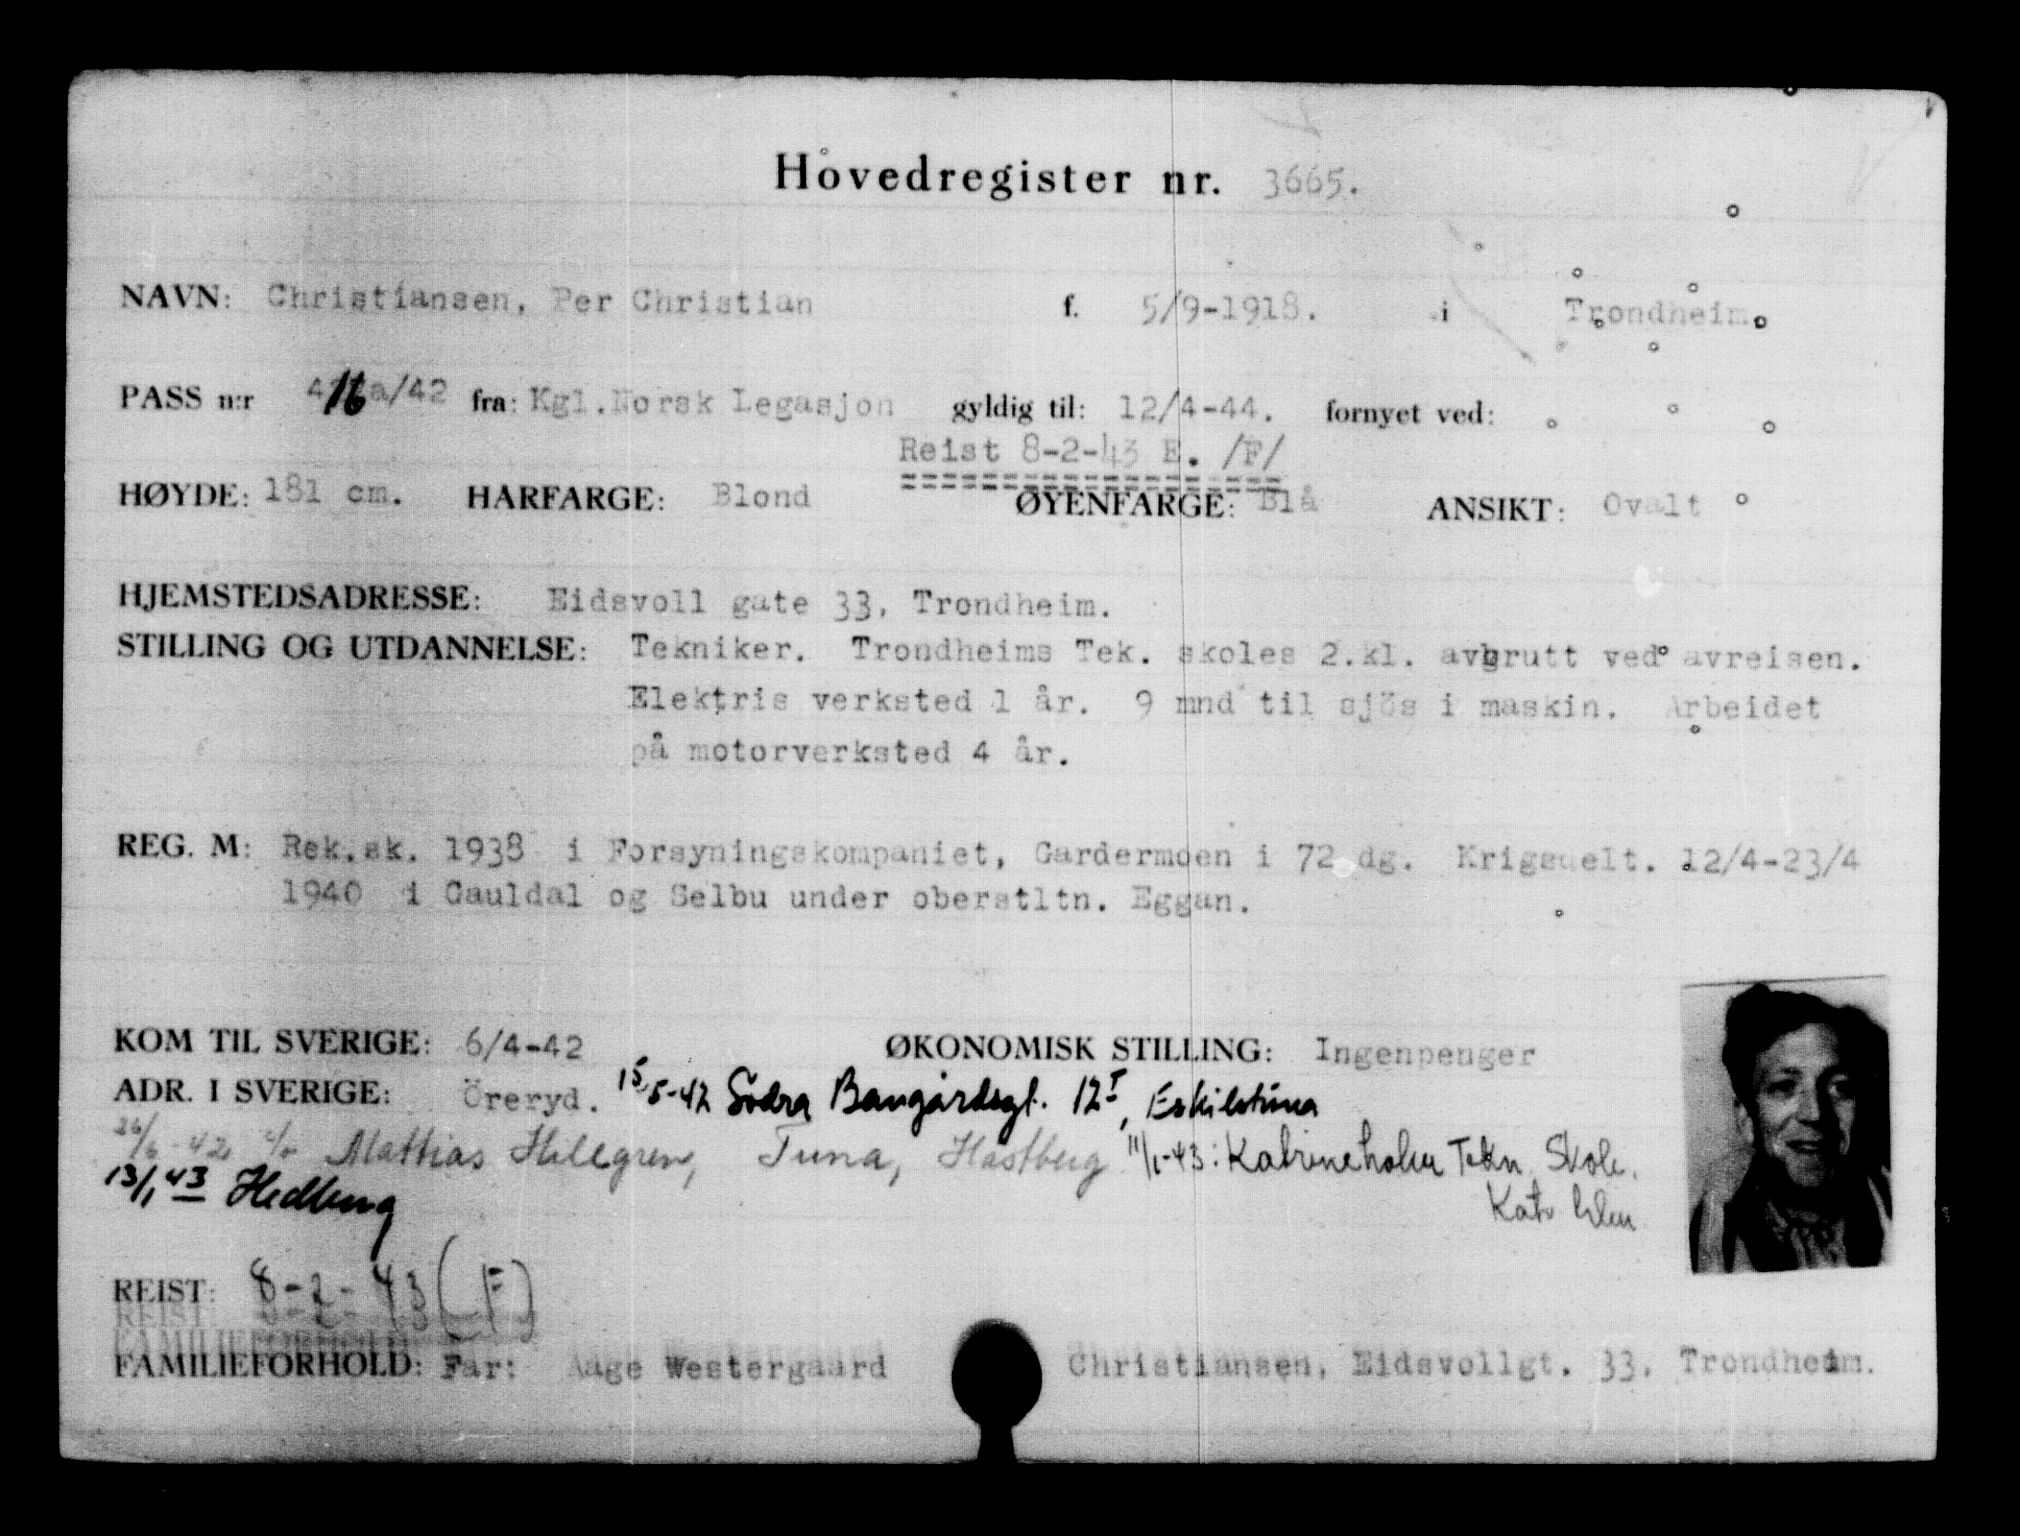 Hovedregister nr. 3665.
NAVN: Christiansen, Per Christian f. 5/9-1918. i Trondheim.
PASS n:r 416a/42 fra: Kgl.Norsk Legasjon gyldig til: 12/4-44. fornyet ved:
Reist 8-2-43 E. /F/
HØYDE: 181 cm. HÅRFARGE: Blond ØYENFARGE: Blå ANSIKT: Ovalt
HJEMSTEDSADRESSE: Eidsvoll gate 33, Trondheim.
STILLING OG UTDANNELSE: Tekniker. Trondheims Tek. skoles 2.kl. avbrutt ved avreisen.
Elektris verksted 1 år. 9 mnd til sjös i maskin. Arbeidet
på motorverksted 4 år.
REG. M: Rek.sk. 1938 i Forsyningskompaniet, Gardermoen i 72 dg. Krigsdelt. 12/4-23/4
1940 i Gauldal og Selbu under oberstltn. Eggan.
KOM TIL SVERIGE: 6/4-42 ØKONOMISK STILLING: Ingenpenger
ADR. I SVERIGE: Öreryd. 15/5-42 Södra Bangårdsgt. 12 I, Eskilstuna
26/6-42 c/o Mattias Hillgren, Tuna, Hästberg 11/1-43: Katrineholm Tekn. Skole.
Katr.holm
13/1 43 Hedberg
REIST: 8-2-43 (F)
FAMILIEFORHOLD: Far: Aage Westergaard Christiansen, Eidsvollgt. 33, Trondheim.